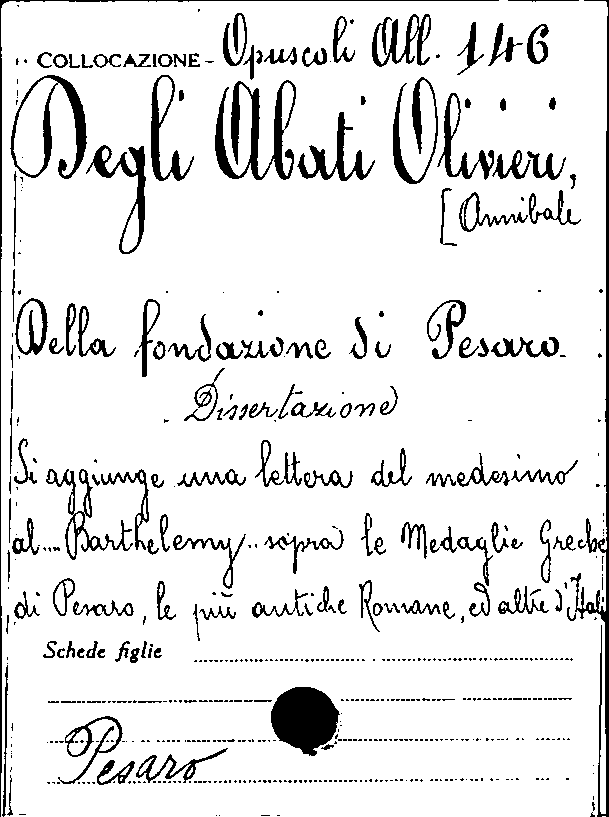 COLLOCAZIONE - Opuscoli All. 146
Degli Abati Olivieri,
[Annibale
Della fondazione di Pesaro.
Dissertazione
Si aggiunge una lettera del medesimo
al... Barthelemy.. sopra le Medaglie Greche
di Pesaro, le più antiche Romane, ed altre d'Itali
Schede figlie
Pesaro